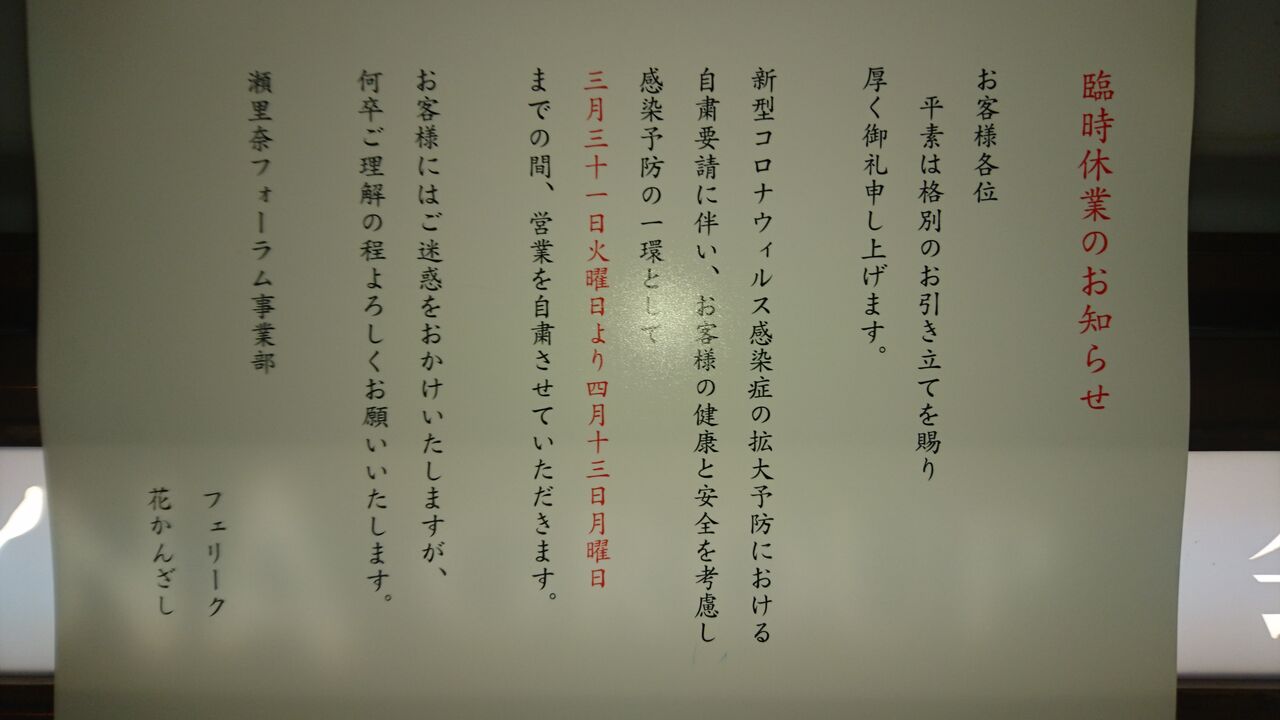 臨時休業のお知らせ
お客様各位
平素は格別のお引き立てを賜り
厚く御礼申し上げます。
新型コロナウィルス感染症の拡大予防における
自粛要請に伴い、お客様の健康と安全を考慮し
感染予防の一環として
三月三十一日火曜日より四月十三日月曜日
までの間、営業を自粛させていただきます。
お客様にはご迷惑をおかけいたしますが、
何卒ご理解の程よろしくお願いいたします。
瀬里奈フォーラム事業部
フェリーク
花かんざし